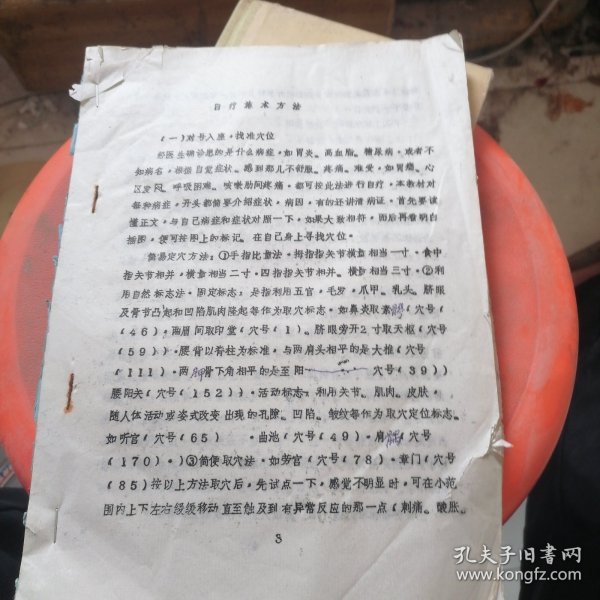 自疗施术方法
(一)对号入座,找准穴位
经医生确诊患的是什么病症,如胃炎。高血脂。糖尿病,或者不
知病名,根据自觉症状。感到那儿不舒服。疼痛。难受,如胃痛、心
区发闷 呼吸困难。咳嗽肋间疼痛,都可按此法进行自疗,本教材对
每种病症,开头都简要介绍症状,病因,有的还讲清病证,首先要读
懂正文,与自己病症和症状对照一下,如果大致相符,而后再看明白
插图,便可按图上的标记。在自己身上寻找穴位。
简易定穴方法:①手指比量法,拇指指关节横量相当一寸,食中
指关节相并,横量相当二寸,四指指关节相并、横量相当三寸,②利
用自然标志法,固定标志:是指利用五官,毛发,爪甲、乳头、脐眼
及骨节凸起和凹陷肌肉隆起等作为取穴标志,如鼻炎取素髎(穴号
(46),两眉间取印堂(穴号(1)。脐眼旁开2寸取天枢(穴号
(59),腰背以脊柱为标准,与两肩头相平的是大椎(穴号
(111),两胛骨下角相平的是至阳 穴号(39))
腰阳关(穴号(152)),活动标志:利用关节、肌肉、皮肤,
随人体活动或姿式改变出现的孔隙、凹陷、皱纹等作为取穴定位标志。
如听宫(穴号(65) ,曲池(穴号(49),肩髃(穴号
(170),)③简便取穴法,如劳宫(穴号(78),章门(穴号
(85)按以上方法取穴后,先试点一下,感觉不明显时,可在小范
围内上下左右缓缓移动直至触及到有异常反应的那一点(刺痛。酸胀。
3
孔夫子旧书网
www.kongfz.com